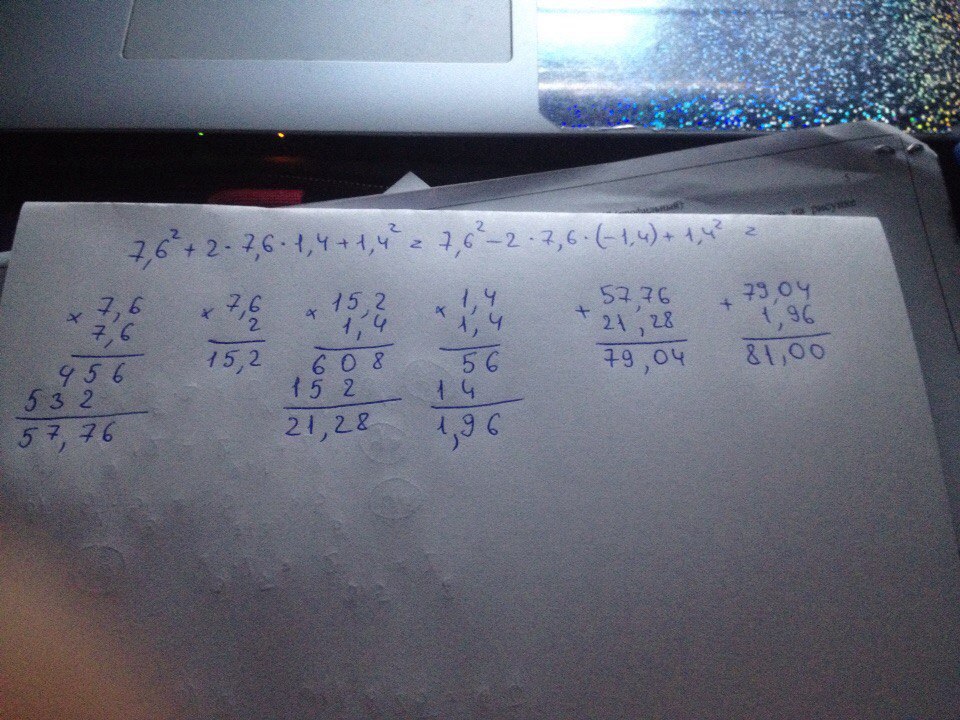 7,6² + 2 · 7,6 · 1,4 + 1,4² = 7,6² − 2 · 7,6 · (−1,4) + 1,4² =
× 7,6
7,6
456
532
57,76
× 7,6
2
15,2
× 15,2
1,4
608
152
21,28
× 1,4
1,4
56
14
1,96
+ 57,76
21,28
79,04
+ 79,04
1,96
81,00